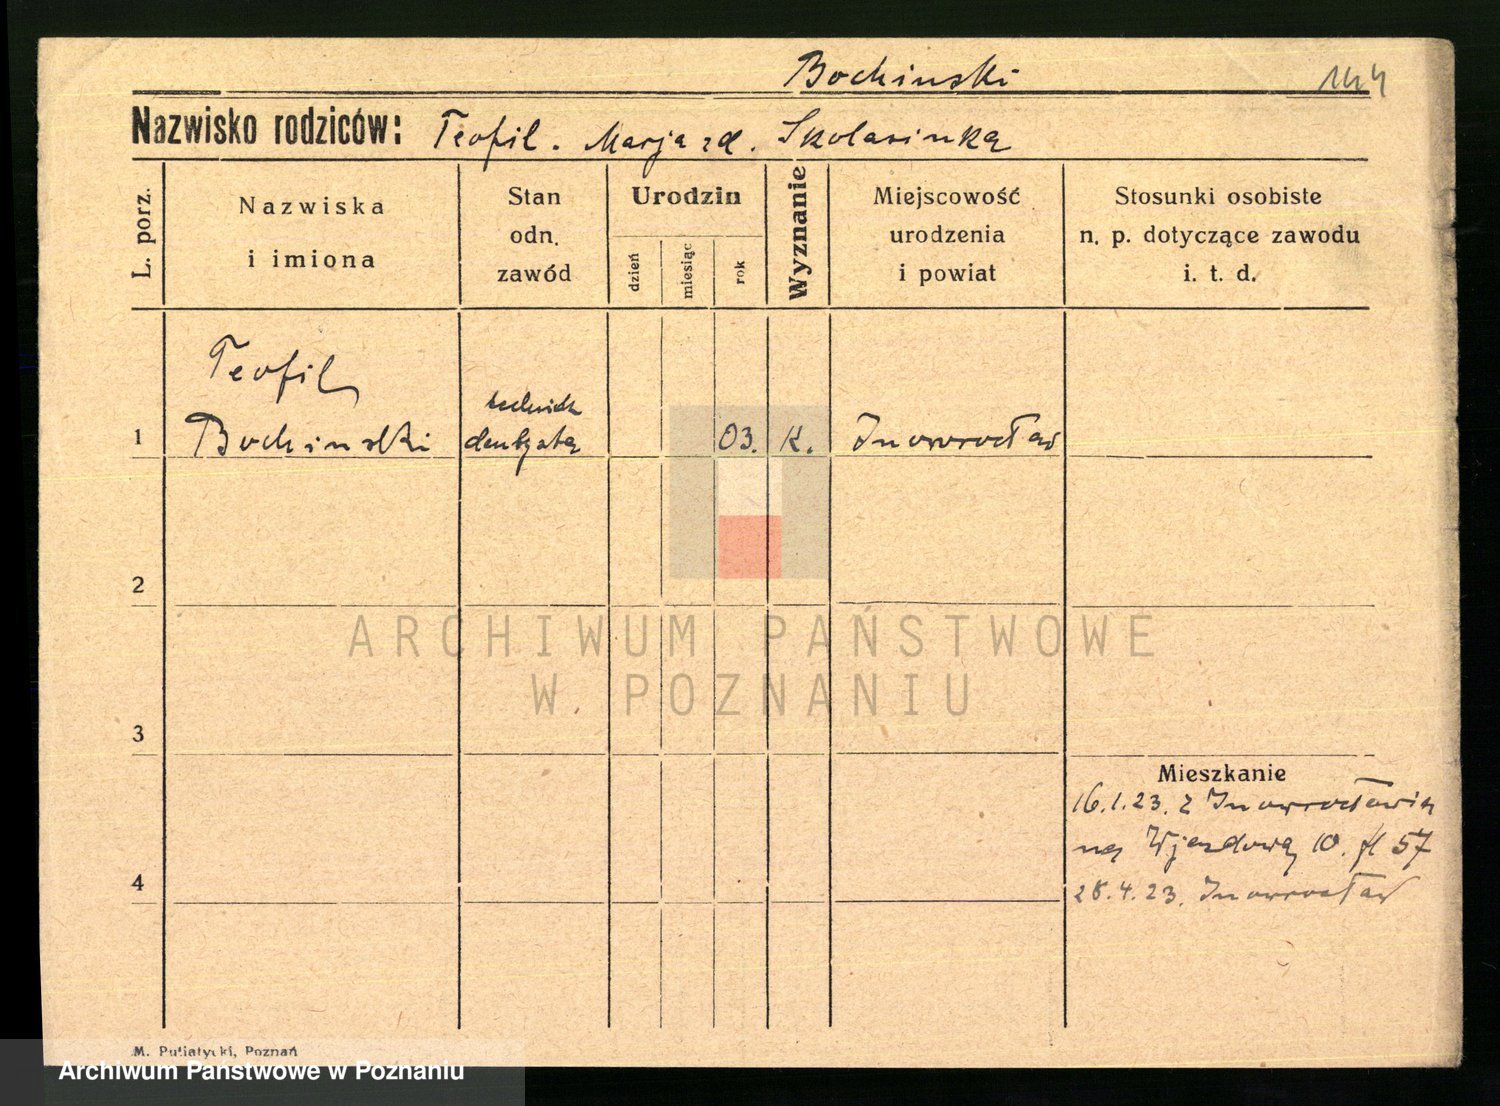 Bochinski 144
Nazwisko rodziców: Teofil. Marja zd. Skolasinka
L. porz.
Nazwiska
i imiona
Stan
odn.
zawód
Urodzin
dzień
miesiąc
rok
Wyznanie
Miejscowość
urodzenia
i powiat
Stosunki osobiste
n. p. dotyczące zawodu
i. t. d.
Teofil
Bochinski
technik
dentysta
1 03. K. Inowrocław
2
3
4
ARCHIWUM PAŃSTWOWE
W POZNANIU
Mieszkanie
16.1.23. z Inowrocławia
na Wjazdową 10. 57
28.4.23. Inowrocław
M. Putiatycki, Poznań
Archiwum Państwowe w Poznaniu